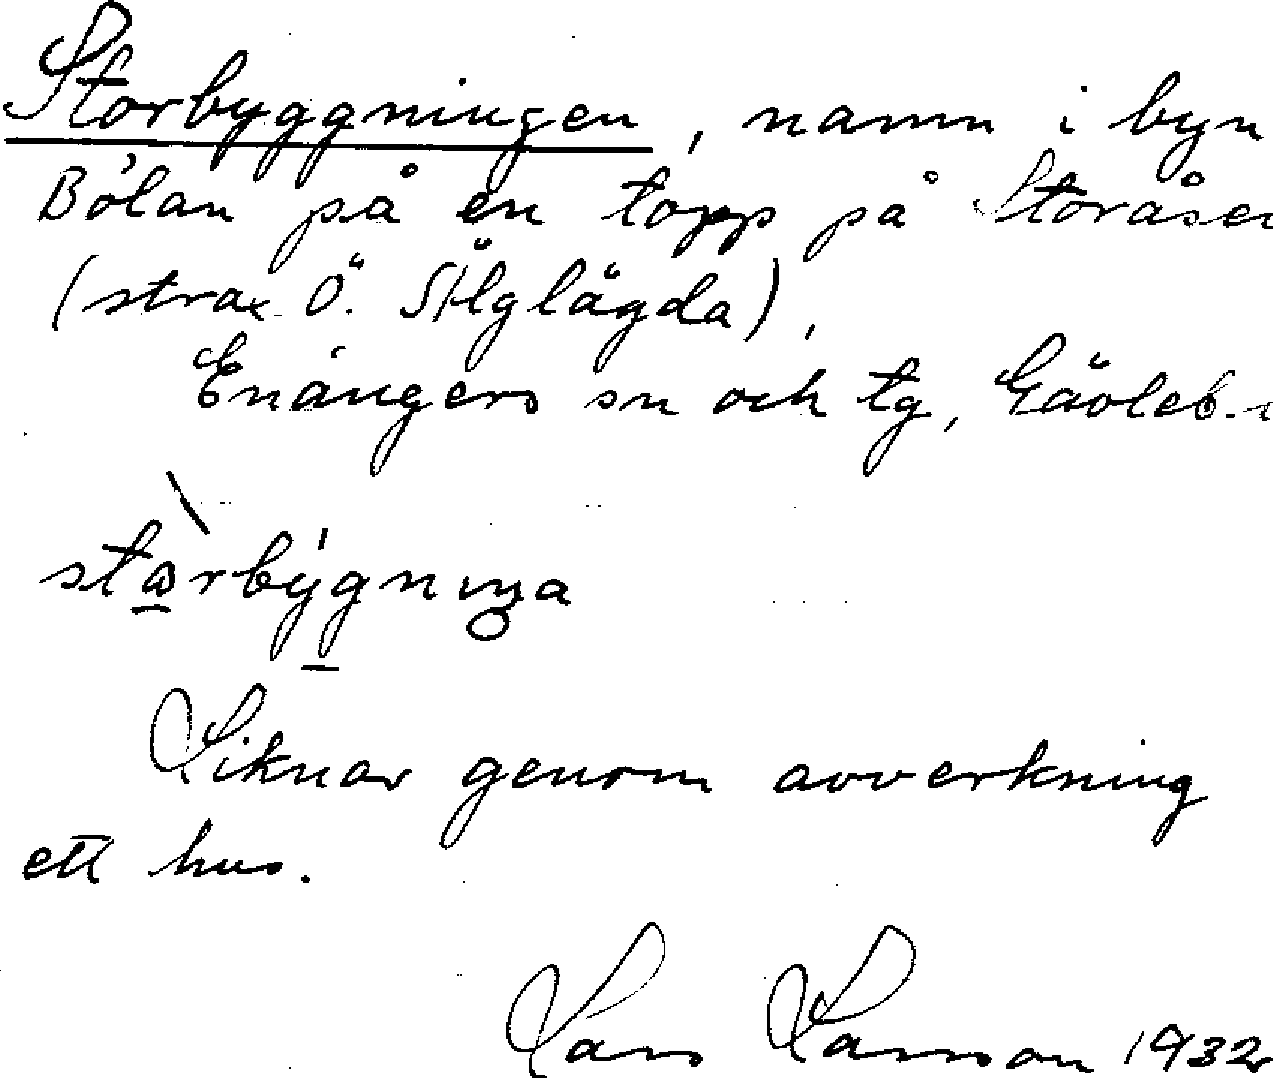 Storbyggningen, namn i byn
Bölan på en topp på Storåsen
(strax Ö. Älglägda),
Enångers sn och tg, Gävleb.
Liknar genom avverkning
ett hus.
Lars Larsson 1932